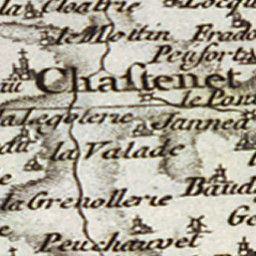 la Cloatrie
le Mottin
Peufort
Chastenet
le Pon
la Legolerie
Janned
la Valade
la Grenollerie
Baud
Ge
Peuchauvet